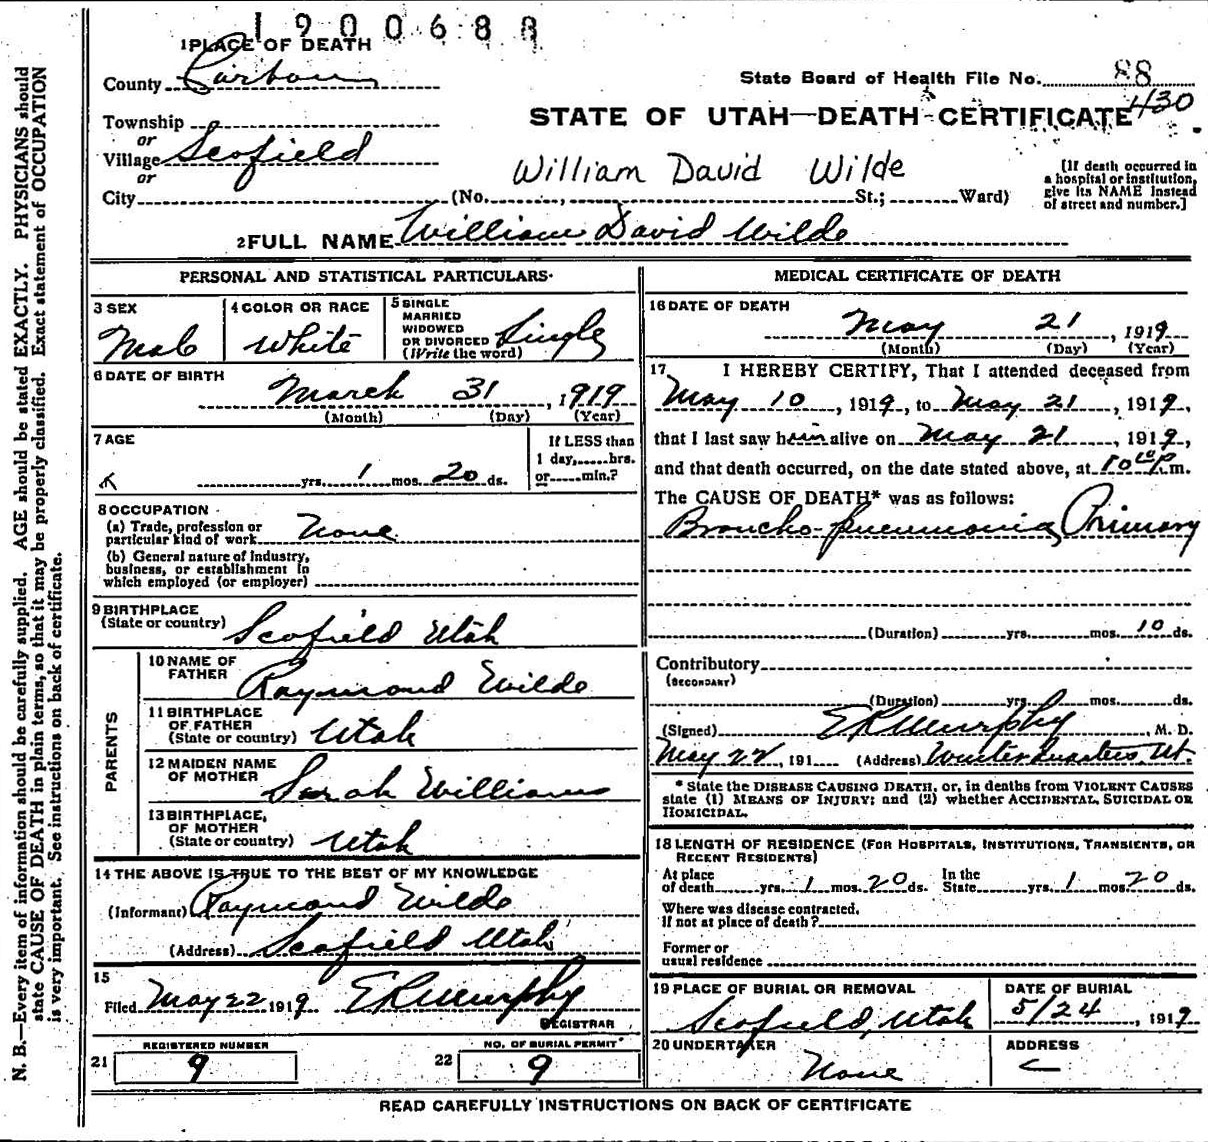 1900688
1 PLACE OF DEATH
County Carbon
State Board of Health File No. 88
Township
or
STATE OF UTAH—DEATH CERTIFICATE 430
Village Scofield
or
William David Wilde
[If death occurred in a hospital or institution, give its NAME instead of street and number.]
City (No. , St.; Ward)
2 FULL NAME William David Wilde
PERSONAL AND STATISTICAL PARTICULARS
3 SEX
Male
4 COLOR OR RACE
White
5 SINGLE
MARRIED
WIDOWED
OR DIVORCED
(Write the word)
Single
6 DATE OF BIRTH
March 31, 1919
(Month) (Day) (Year)
7 AGE
yrs. 1 mos. 20 ds.
If LESS than
1 day, hrs.
or min.?
8 OCCUPATION
(a) Trade, profession or
particular kind of work None
(b) General nature of Industry,
business, or establishment in
which employed (or employer)
9 BIRTHPLACE
(State or country) Scofield Utah
PARENTS
10 NAME OF
FATHER Raymond Wilde
11 BIRTHPLACE
OF FATHER
(State or country) Utah
12 MAIDEN NAME
OF MOTHER Sarah Williams
13 BIRTHPLACE,
OF MOTHER
(State or country) Utah
14 THE ABOVE IS TRUE TO THE BEST OF MY KNOWLEDGE
(Informant) Raymond Wilde
(Address) Scofield Utah
15
Filed May 22 1919 E R Murphy
REGISTRAR
REGISTERED NUMBER
21 9
NO. OF BURIAL PERMIT
22 9
MEDICAL CERTIFICATE OF DEATH
16 DATE OF DEATH
May 21, 1919
(Month) (Day) (Year)
17 I HEREBY CERTIFY, That I attended deceased from
May 10, 1919, to May 21, 1919,
that I last saw him alive on May 21, 1919,
and that death occurred, on the date stated above, at 10 10 P. m.
The CAUSE OF DEATH* was as follows:
Broncho-pneumonia Primary
(Duration) yrs. mos. 10 ds.
Contributory
(SECONDARY)
(Duration) yrs. mos. ds.
(Signed) E R Murphy, M. D.
May 22, 191 (Address) Winterquarters, Ut.
* State the DISEASE CAUSING DEATH, or, in deaths from VIOLENT CAUSES
state (1) MEANS OF INJURY; and (2) whether ACCIDENTAL, SUICIDAL OR
HOMICIDAL.
18 LENGTH OF RESIDENCE (FOR HOSPITALS, INSTITUTIONS, TRANSIENTS, OR
RECENT RESIDENTS)
At place
of death yrs. 1 mos. 20 ds. In the
State yrs. 1 mos. 20 ds.
Where was disease contracted,
If not at place of death?
Former or
usual residence
19 PLACE OF BURIAL OR REMOVAL
Scofield, Utah
DATE OF BURIAL
5/24, 1919
20 UNDERTAKER
None
ADDRESS
READ CAREFULLY INSTRUCTIONS ON BACK OF CERTIFICATE
N. B.—Every item of information should be carefully supplied. AGE should be stated EXACTLY. PHYSICIANS should
state CAUSE OF DEATH in plain terms, so that it may be properly classified. Exact statement of OCCUPATION
is very important. See instructions on back of certificate.